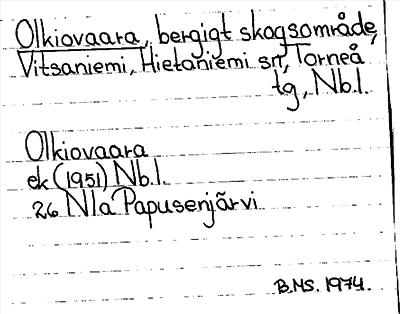 Olkiovaara, bergigt skogsområde,
Vitsaniemi, Hietaniemi sn, Torneå
tg, Nb.l.
Olkiovaara
ek (1951) Nb.l.
26 N1a Papusenjärvi
B.MS. 1974.